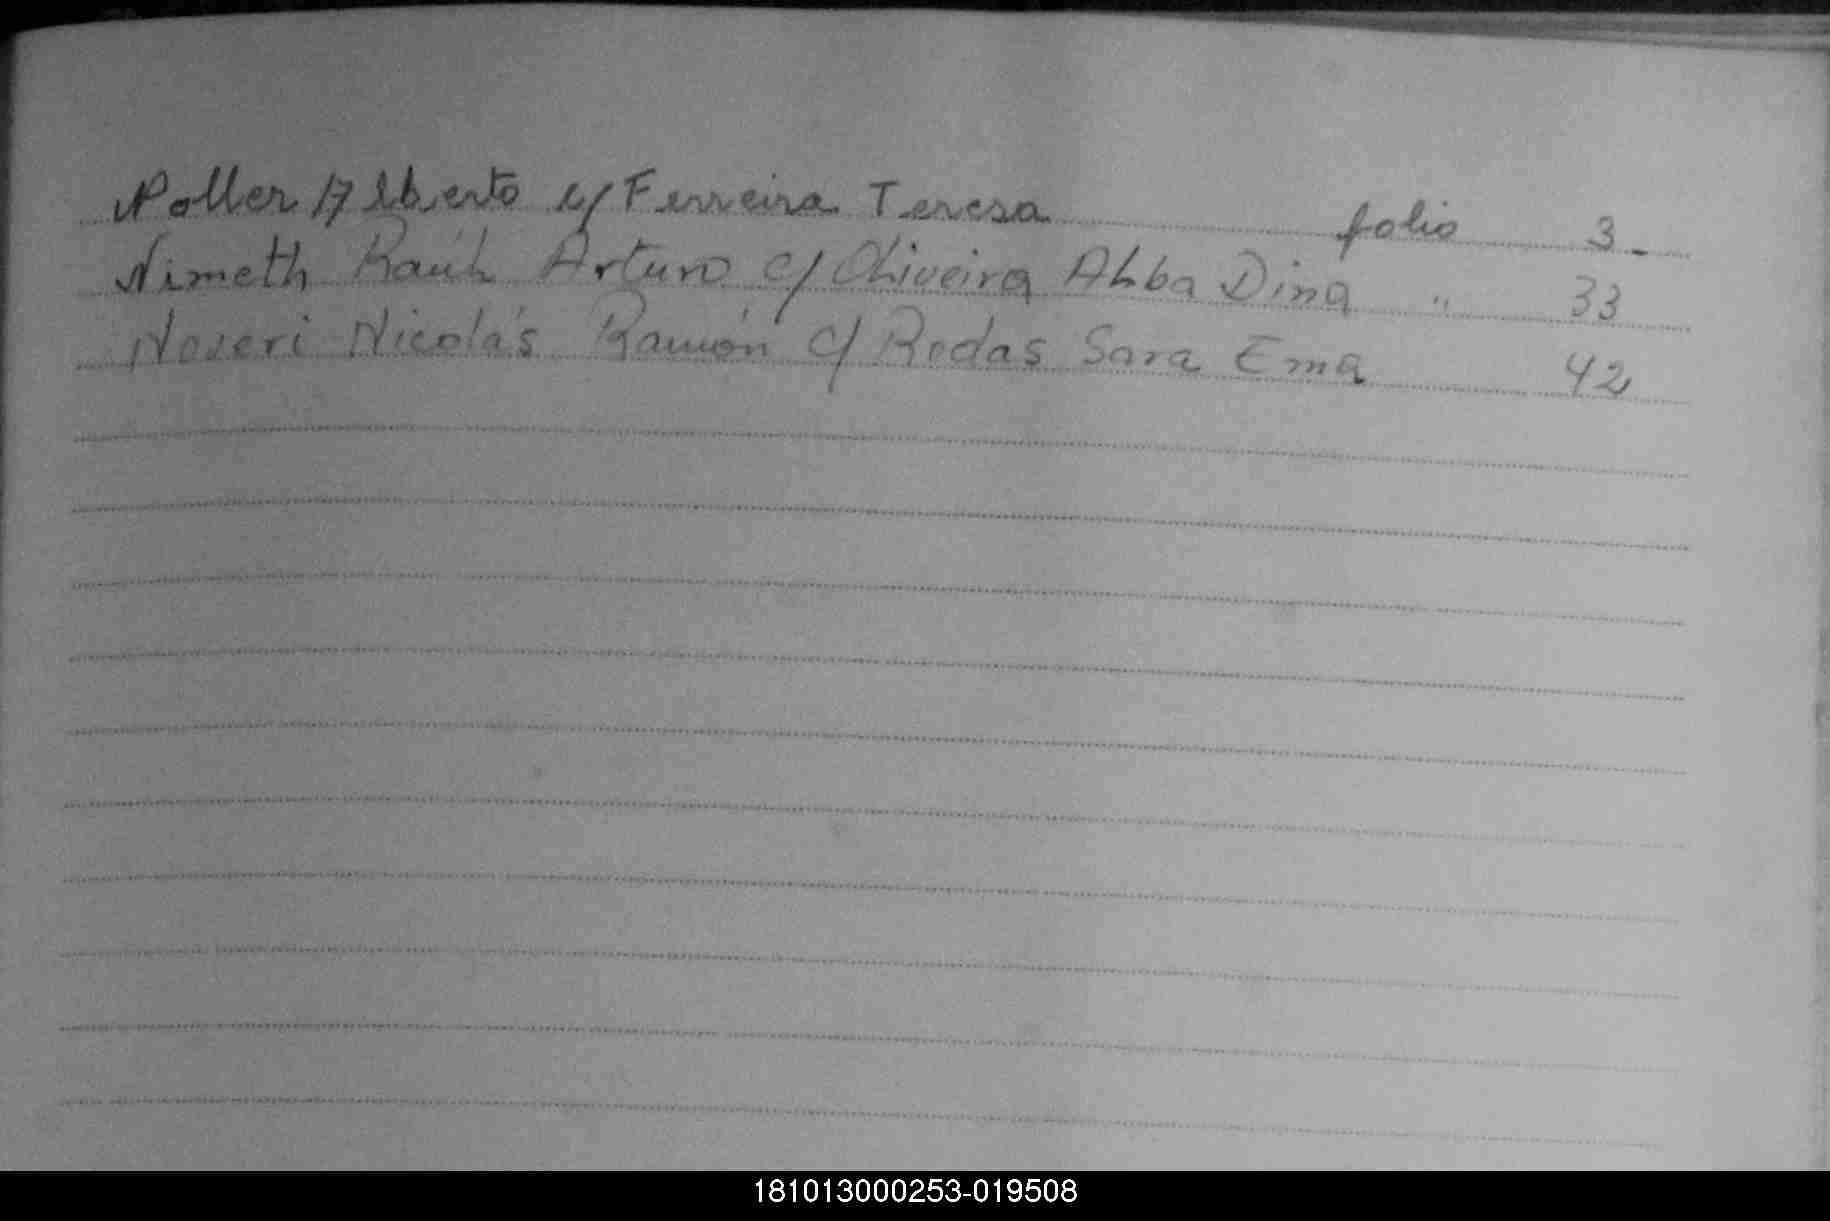 Noller Alberto c/ Ferreira Teresa folio 3-
Nimeth Raúl Arturo c/ Oliveira Alba Dina " 33
Noseri Nicolás Ramón c/ Rodas Sara Ema 42
181013000253-019508